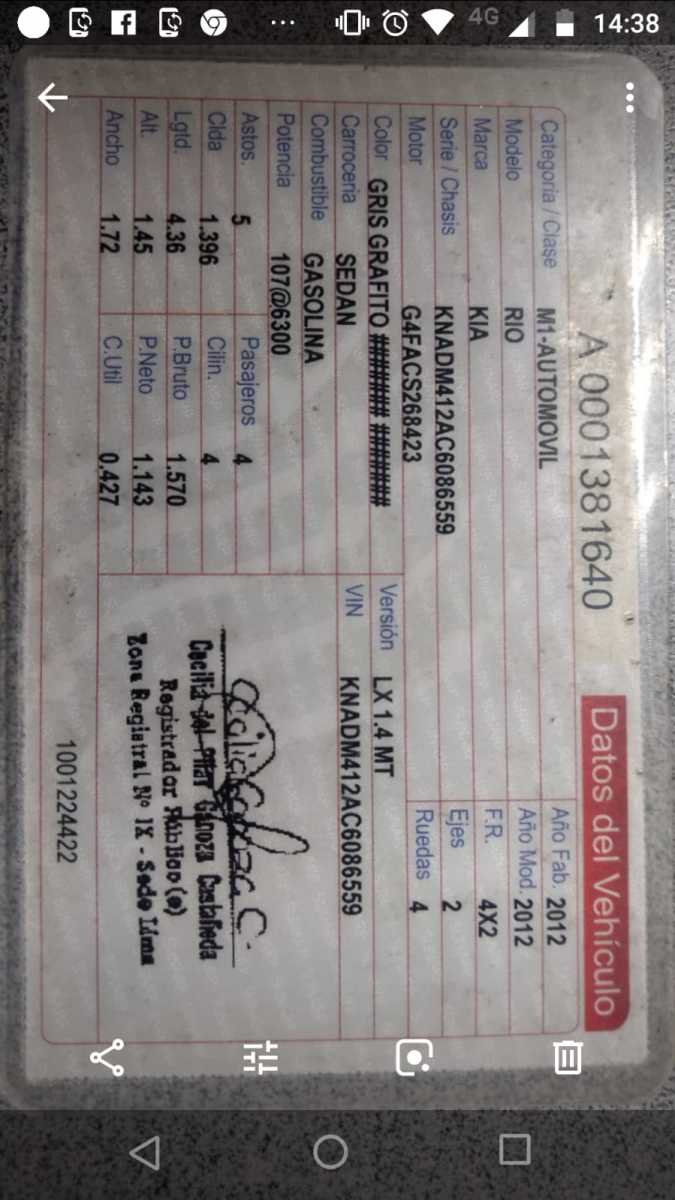 14:38
4G
A 0001381640
Datos del Vehículo
Categoria / Clase M1-AUTOMOVIL Año Fab. 2012
Modelo RIO Año Mod. 2012
Marca KIA F.R. 4X2
Serie / Chasis KNADM412AC6086559 Ejes 2
Motor G4FACS268423 Ruedas 4
Color GRIS GRAFITO ####### ######## Versión LX 1.4 MT
Carroceria SEDAN VIN KNADM412AC6086559
Combustible GASOLINA
Potencia 107@6300
Astos. 5 Pasajeros 4
Clda 1.396 Cilin. 4
Lgtd. 4.36 P.Bruto 1.570
Alt. 1.45 P.Neto 1.143
Ancho 1.72 C.Util 0.427
Cecilia del Pilar Cánova Castañeda
Registrador Público (e)
Zona Registral Nº IX - Sede Lima
1001224422